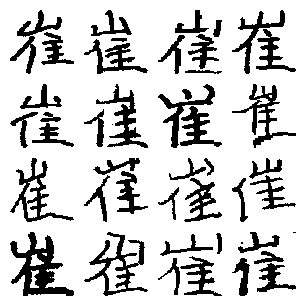 崔崔崔崔
崔崔崔崔
崔崔崔崔
崔崔崔崔